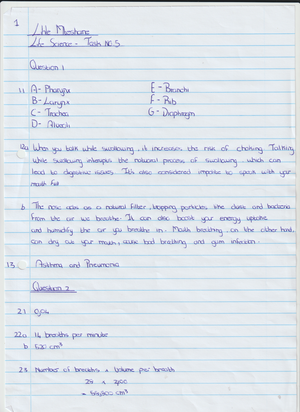 1
Life Science - Task No 5
Question 1
1.1 A- Pharynx E- Bronchi
B- Larynx F- Rib
C- Trachea G- Diaphragm
D- Alveoli
a When you talk while swallowing, it increases the risk of choking. Talking
while swallowing interrupts the natural process of swallowing, which can
lead to digestive issues. It's also considered impolite to speak with your
mouth full
b The nose acts as a natural filter, trapping particles, like dust and bacteria
from the air we breathe. It can also boost your energy uptake
and humidify the air you breathe in. Mouth breathing, on the other hand,
can dry out your mouth, cause bad breathing and gum infection.
1.3 Asthma and Pneumonia
Question 2
2.1 0,04
2.2 a 14 breaths per minute
b 520 cm³
2.3 Number of breaths x Volume per breath
28 x